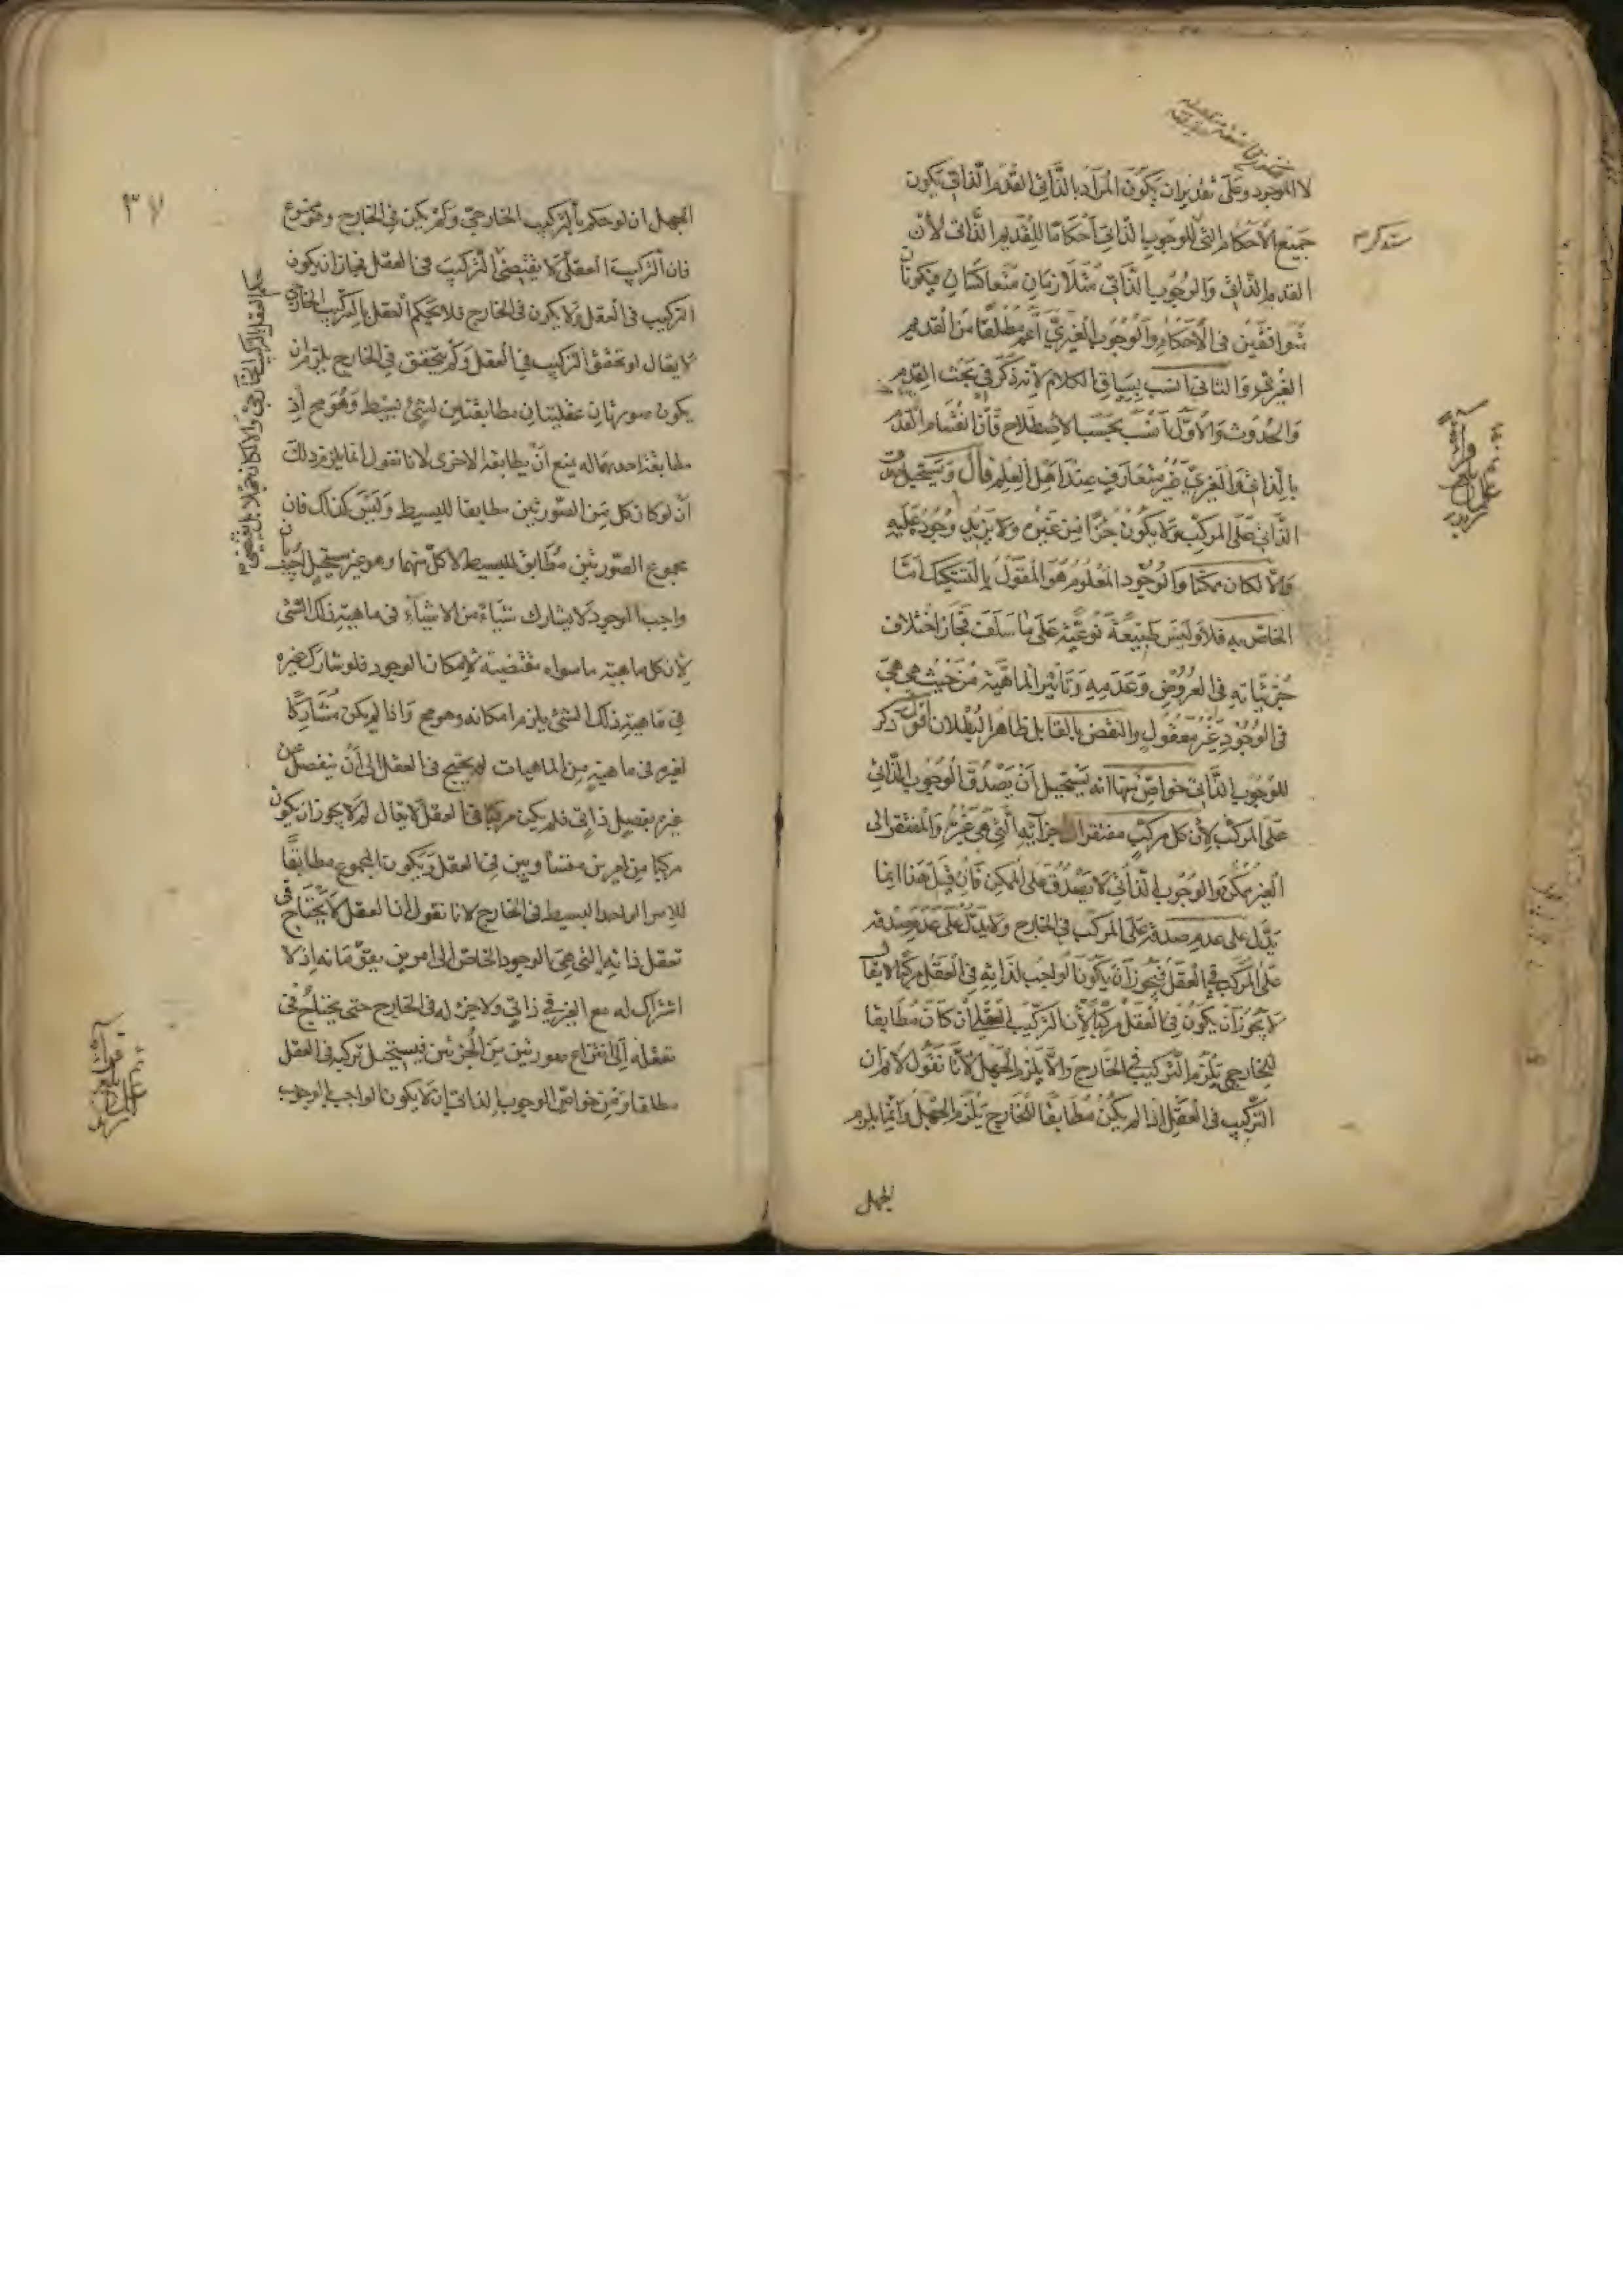 لا للوجود وعلى تقدير ان يكون المراد بالذاتي القدم الذاتي يكون
جميع الأحكام التي للوجوب الذاتي أحكاما للقديم الذاتي لأن
القدم الذاتي والوجوب الذاتي متلازمان متعاكسان فيكونان
متوافقين في الأحكام والوجوب الغيري أعم مطلقا من القديم
الغيري والثاني انسب بسياق الكلام لأنه ذكر في بحث القدم
والحدوث والأول أنسب بحسب الاصطلاح فان انقسام القدم
بالذاتي والغيري غير متعارف عند أهل العلم قال ويستحيل صدق
الذاتي على المركب ولا يكون جزأ من غيره ولا يزيد وجوده عليه
والا لكان ممكنا والوجود المعلوم هو المقول بالتشكيك أما
الخاص به فلا وليس طبيعة نوعية على ما سلف فجاز اختلاف
جزئياته في العروض وعدمه وتأثير الماهية من حيث هي هي
في الوجود غير معقول والنقض بالقابل ظاهر البطلان أقول ذكر
للوجوب الذاتي خواص منها انه يستحيل أن يصدق الوجوب الذاتي
على المركب لأن كل مركب مفتقر الى جزائه التي هي غيره والمفتقر الى
الغير ممكن والوجوب الذاتي لا يصدق على الممكن فان قيل هذا انما
يدل على عدم صدقه على المركب في الخارج ولا يدل على عدم صدقه
على المركب في العقل فيجوز أن يكون الواجب لذاته في العقل مركبا لا يقال
لا يجوز أن يكون في العقل مركبا لأن التركيب في العقل ان كان مطابقا
للخارجي يلزم التركيب في الخارج والا يلزم الجهل لأنا نقول لا نم ان
التركيب في العقل اذا لم يكن مطابقا للخارج يلزم الجهل وانما يلزم
الجهل
٣٧
الجهل ان لو حكم بالتركيب الخارجي ولم يكن في الخارج وهو ممنوع
فان التركيب العقلي لا يقتضي التركيب في العقل فجاز ان يكون
التركيب في العقل ولا يكون في الخارج فلا يحكم العقل بالتركيب الخارجي
لا يقال لو تحقق التركيب في العقل ولم يتحقق في الخارج يلزم ان
يكون صورتان عقليتان مطابقتين لشئ بسيط وهو مح اذ
مطابقة احدهما له يمنع أن يطابقه الاخرى لانا نقول انما يلزم ذلك
أن لو كان كل من الصورتين مطابقا للبسيط وليس كذلك فان
مجموع الصورتين مطابق للبسيط لا كل منهما وهو غير مستحيل
واجب الوجود لا يشارك شيأ من الاشياء في ماهية ذلك الشئ
لأن كل ماهية ما سواه مقتضية لإمكان الوجود فلو شارك غيره
في ماهية ذلك الشئ يلزم امكانه وهو مح واذا لم يكن مشاركا
لغيره في ماهية من الماهيات لم يحتج في العقل الى أن ينفصل عن
غيره بفصل ذاتي فلم يكن مركبا في العقل لا يقال لم لا يجوز ان يكون
مركبا من امرين متساويين في العقل ويكون المجموع مطابقا
للامر الواحد البسيط في الخارج لانا نقول أن العقل لا يحتاج في
تعقل ذاته التي هي الوجود الخاص الى امرين يقومانه اذ لا
اشتراك له مع الغير في ذاتي ولا جزء له في الخارج حتى يحتاج في
تعقله إلى انتزاع صورتين من الجزئين فيستحيل تركبه في العقل
مطلقا ومن خواص الوجوب الذاتي ان لا يكون الواجب الوجوب